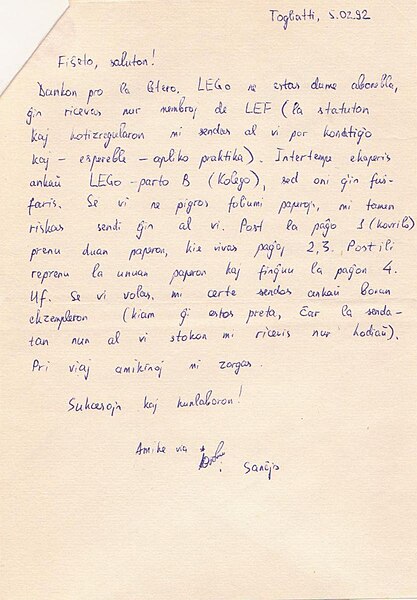 Togliatti, 5.02.92
Fiŝeto, saluton!
Dankon pro la letero. LEGo ne estas dume abonebla,
ĝin ricevas nur membroj de LEF (la statuton
kaj kotizregularon mi sendas al vi por konatiĝo
kaj - espereble - apliko praktika). Intertempe ekaperis
ankaŭ LEGo-parto B (Kolego), sed oni ĝin fuŝ-
faris. Se vi ne pigros foliumi paperojn, mi tamen
riskas sendi ĝin al vi. Post la paĝo 1 (kovrilo)
prenu duan paperon, kie vivas paĝoj 2,3. Post ili
reprenu la unuan paperon kaj finĝuu la paĝon 4.
Uf. Se vi volas, mi certe sendos ankaŭ bonan
ekzempleron (kiam ĝi estos preta, ĉar la senda-
tan nun al vi stokon mi ricevis nur hodiaŭ).
Pri viaj amikinoj mi zorgas.
Sukcesojn kaj kunlaboron!
Amike via
Sanĉjo